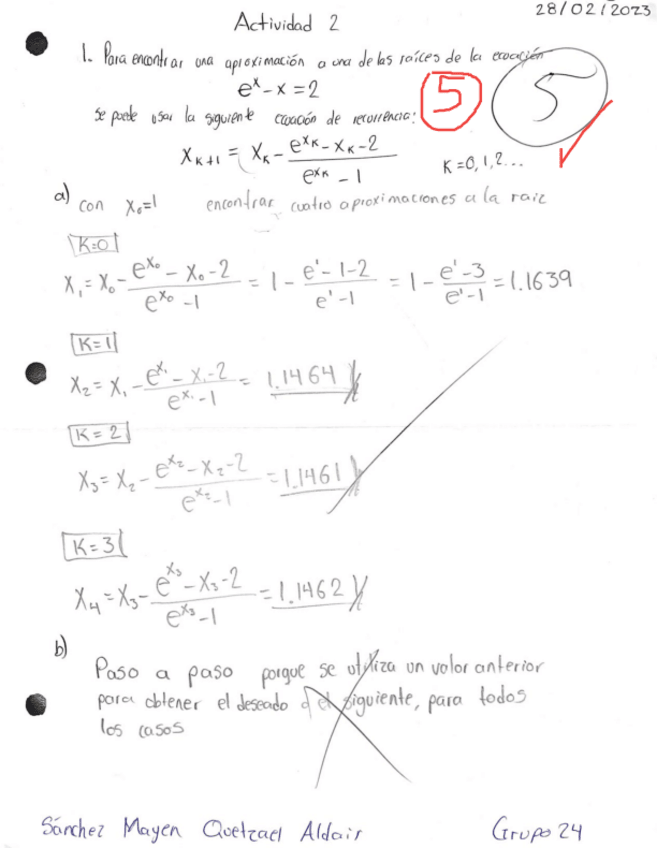 28/02/2023
Actividad 2
1. Para encontrar una aproximación a una de las raíces de la ecuación
e^x - x = 2
se puede usar la siguiente ecuación de recurrencia:
5
5
x_{K+1} = x_K - (e^{x_K} - x_K - 2) / (e^{x_K} - 1)    K=0,1,2...
a) con x_0=1 encontrar cuatro aproximaciones a la raiz
K=0
x_1 = x_0 - (e^{x_0} - x_0 - 2) / (e^{x_0} - 1) = 1 - (e^1 - 1 - 2) / (e^1 - 1) = 1 - (e^1 - 3) / (e^1 - 1) = 1.1639
K=1
x_2 = x_1 - (e^{x_1} - x_1 - 2) / (e^{x_1} - 1) = 1.1464
K=2
x_3 = x_2 - (e^{x_2} - x_2 - 2) / (e^{x_2} - 1) = 1.1461
K=3
x_4 = x_3 - (e^{x_3} - x_3 - 2) / (e^{x_3} - 1) = 1.1462
b)
Paso a paso porque se utiliza un valor anterior
para obtener el deseado o el siguiente, para todos
los casos
Sánchez Mayen Quetzael Aldair Grupo 24